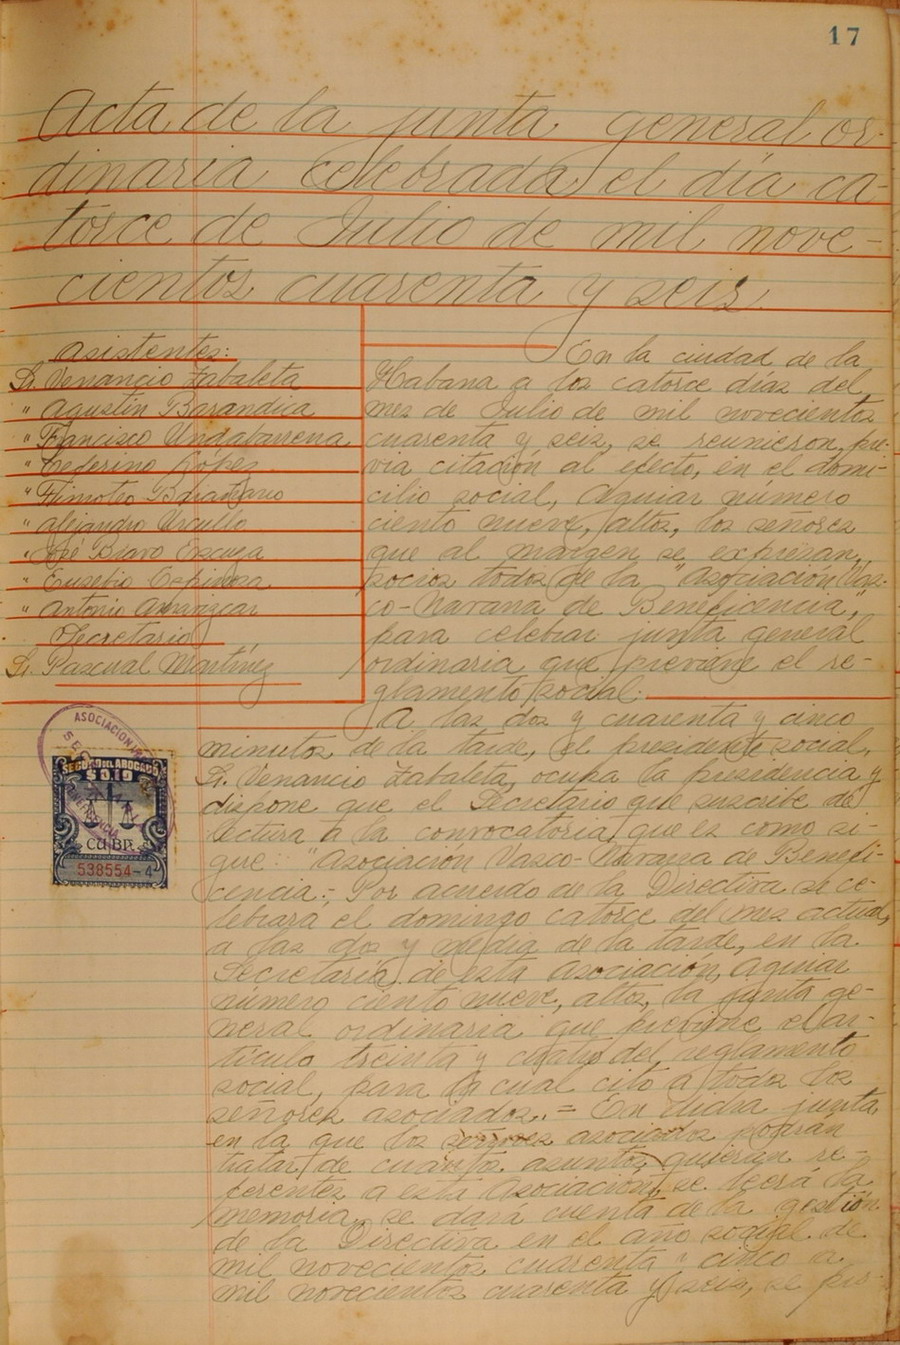 17
Acta de la junta general or-
dinaria celebrada el día ca-
torce de Julio de mil nove-
cientos cuarenta y seis.
Asistentes:
Sr. Venancio Zabaleta
" Agustín Barandica
" Francisco Undabarrena
" Ceferino López
" Timoteo
" Alejandro Urcullo
" José Bravo Escuza
" Eusebio Espinosa
" Antonio
Secretario
Sr. Pascual Martínez
En la ciudad de la
Habana a los catorce días del
mes de Julio de mil novecientos
cuarenta y seis, se reunieron, pre-
via citación al efecto, en el domi-
cilio social, Aguiar número
ciento nueve, altos, los señores
que al margen se expresan,
socios todos de la "Asociación Vas-
co-Navarra de Beneficencia",
para celebrar junta general
ordinaria que previene el re-
glamento social.
A las dos y cuarenta y cinco
minutos de la tarde, el presidente social,
Sr. Venancio Zabaleta, ocupa la presidencia y
dispone que el Secretario que suscribe dé
lectura a la convocatoria que es como si-
gue: "Asociación Vasco-Navarra de Benefi-
cencia.- Por acuerdo de la Directiva se ce-
lebrará el domingo catorce del mes actual,
a las dos y media de la tarde, en la
Secretaría de esta Asociación, Aguiar
número ciento nueve, altos, la junta ge-
neral ordinaria que previene el ar-
tículo treinta y cuatro del reglamento
social, para la cual cito a todos los
señores asociados.= En dicha junta,
en la que los señores asociados podrán
tratar de cuantos asuntos quieran re-
ferentes a esta Asociación, se leerá la
memoria, se dará cuenta de la gestión
de la Directiva en el año social de
mil novecientos cuarenta y cinco a
mil novecientos cuarenta y seis, se pro-
ASOCIACION
SEGURO DEL ABOGADO
$0.10
CUBA
538554-4